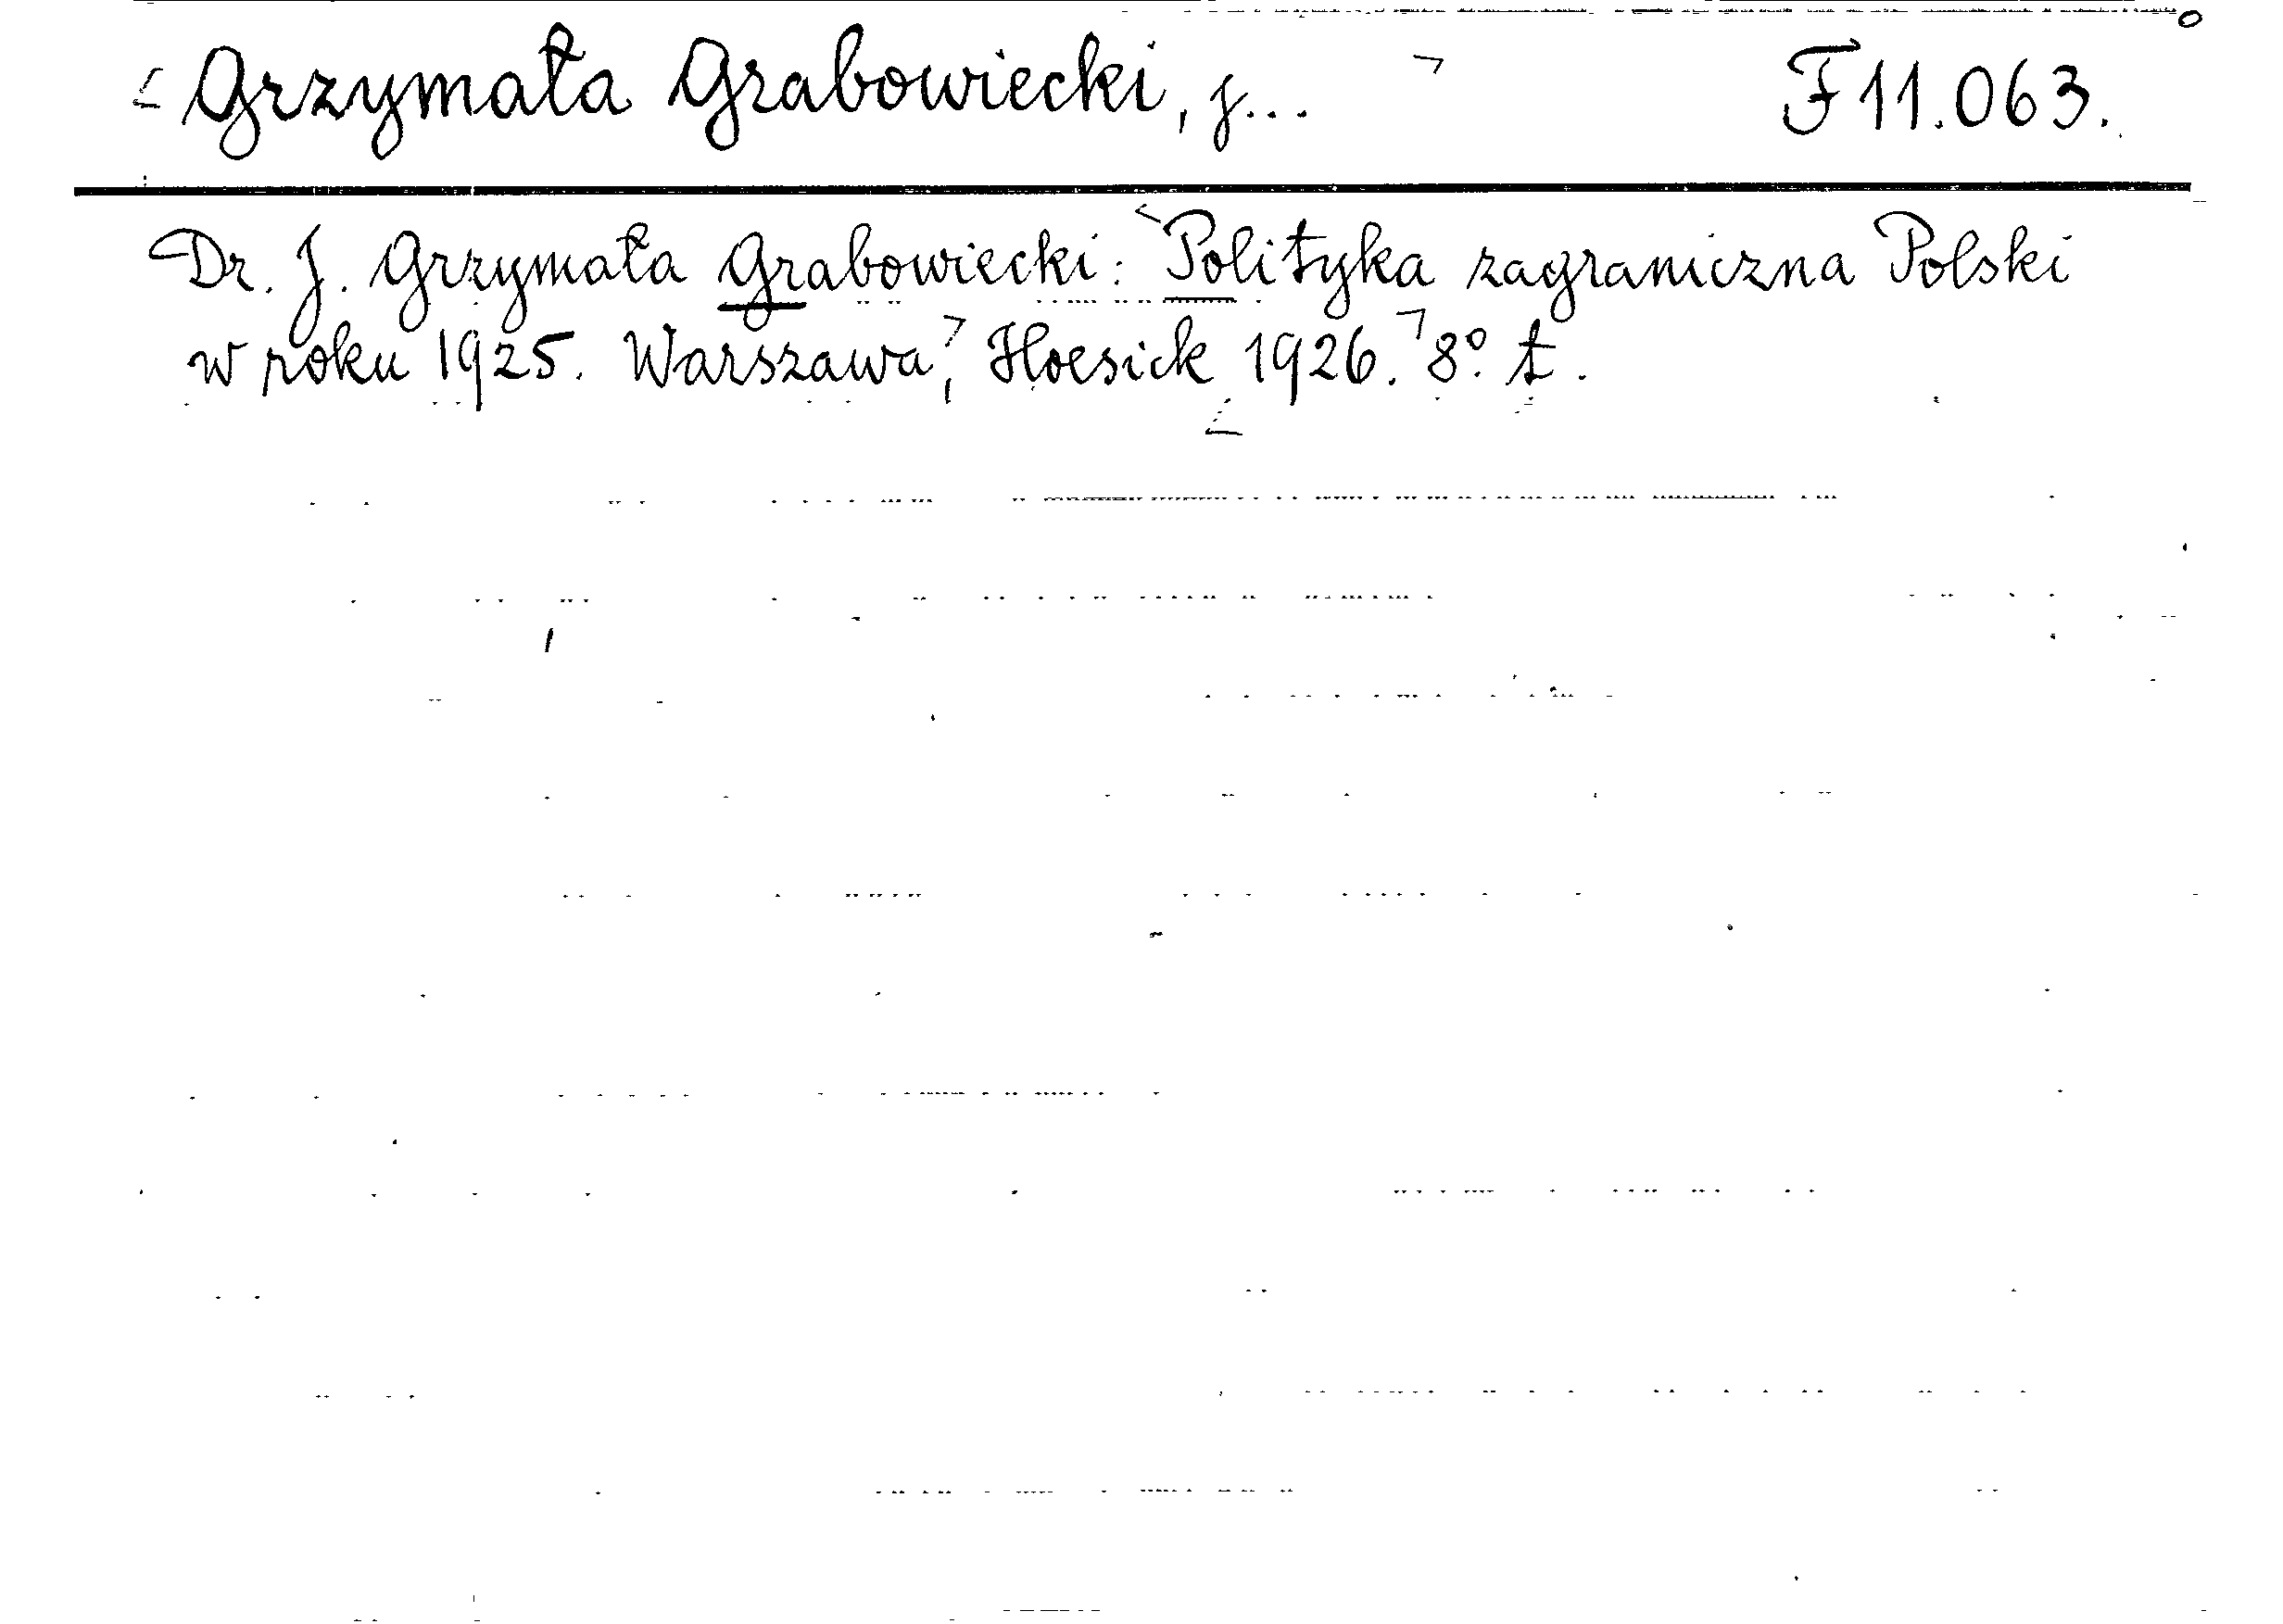 Grzymała Grabowiecki, J... F 11.063.
Dr. J. Grzymała Grabowiecki: Polityka zagraniczna Polski
w roku 1925. Warszawa, Hoesick 1926. 8° t.